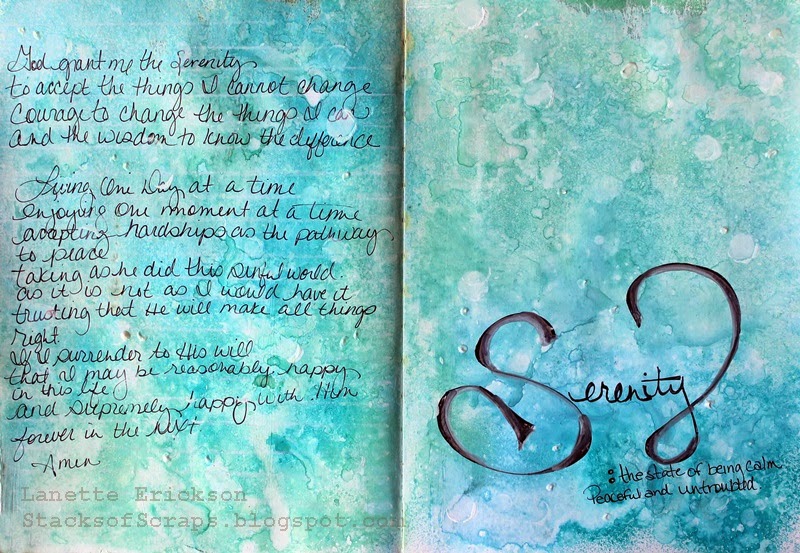 God grant me the Serenity
to accept the things I cannot change
Courage to change the things I can
and the wisdom to know the difference
Living One Day at a time
enjoying One moment at a time
accepting hardships as the pathway
to peace
taking as he did this sinful world
as it is not as I would have it
trusting that He will make all things
right
if I surrender to His will
that I may be reasonably happy
in this life
and Supremely happy with Him
forever in the Next
Amen
Lanette Erickson
StacksofScraps.blogspot.com
Serenity
: the state of being calm
Peaceful and untroubled